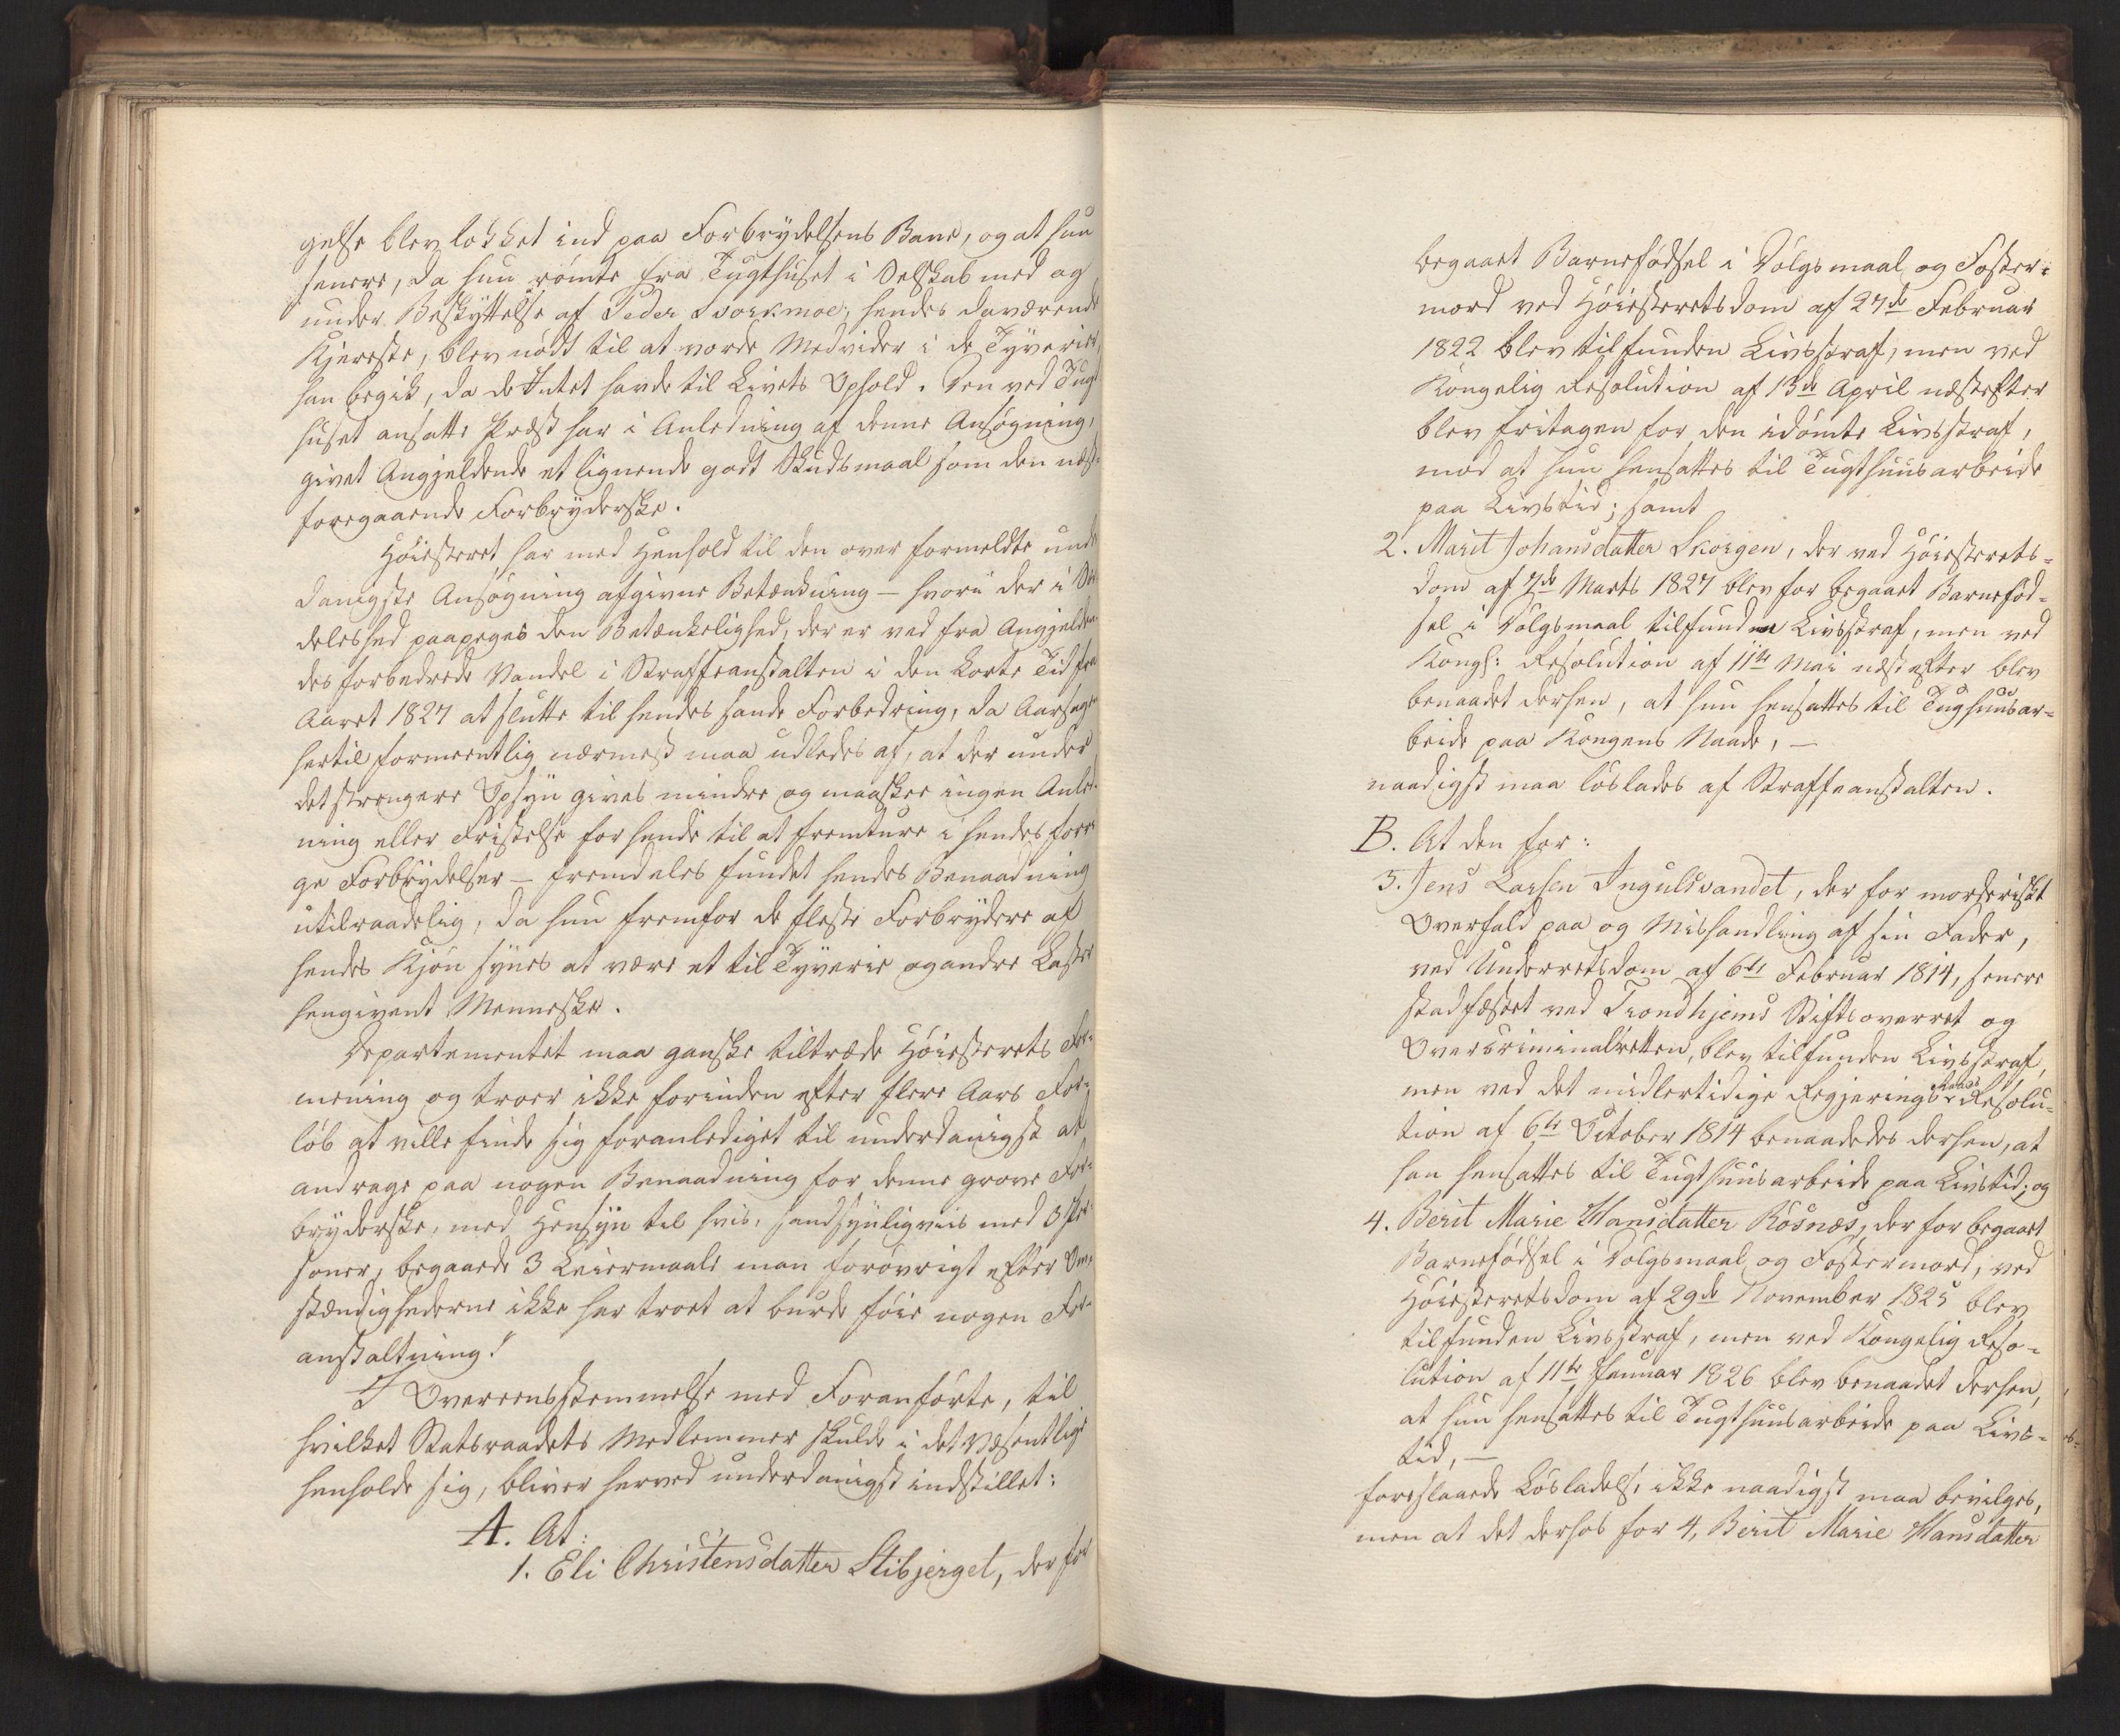 gelse blev lokket ind paa Forbrydelsens Bane, og at hun
senere, da hun rømte fra Tugthuset i Selskab med og
under Beskyttelse af Peder Svorkmoe, hendes daværende
Kjereste, blev nødt til at vorde Medvider i de Tyverier,
han begik, da de Intet havde til Livets Ophold. Den ved Tugt
huset ansatte Præst har i Anledning af denne Ansøgning,
givet Angjeldende et lignende godt Skudsmaal som den næst
foregaaende Forbryderske.
Høiesteret har med Henhold til den over formeldte unde
danigste Ansøgning afgivne Betænkning – hvori der i Sær
deleshed paapeges den Betænkelighed, der er ved fra Angjelden
des forbedrede Vandel i Straffeanstalten i den korte Tid fra
Aaret 1827 at slutte til hendes sande Forbedring, da Aarsagen
hertil formeentlig nærmest maa udledes af, at der under
det strengere Opsyn gives mindre og maaskee ingen Anled-
ning eller Fristelse for hende til at fremture i hendes forri
ge Forbrydelser – fremdeles fundet hendes Benaadning
utilraadelig, da hun fremfor de fleste Forbrydere af
hendes Kjøn synes at være et til Tyverie og andre Laster
hengivent Menneske.
Departementet maa ganske tiltræde Høiesterets For-
mening og troer ikke forinden efter flere Aars For-
løb at ville finde sig foranlediget til underdanigst at
andrage paa nogen Benaadning for denne grove For-
bryderske, med Hensyn til hvis, sandsynligviis med 3 Per
soner, begaaede 3 Leiermaale man forøvrigt efter Om-
stændighederne ikke har troet at burde føie nogen For-
anstaltning."
I Overeensstemmelse med Foranførte, til
hvilket Statsraadets Medlemmer skulde i det Væsentlige
henholde sig, bliver herved underdanigst indstillet:
A. At:
1. Eli Christensdatter Stibjerget, der for
begaaet Barnefødsel i Dølgsmaal og Foster-
mord ved Høiesteretsdom af 27de Februar
1822 blev tilfunden Livsstraf, men ved
Kongelig Resolution af 13de April næstefter
blev fritagen for den idømte Livsstraf,
mod at hun hensattes til Tugthuusarbeide
paa Livstid; samt
2. Marit Johansdatter Skorgen, der ved Høiesterets-
dom af 7de Marts 1827 blev for begaaet Barnefød-
sel i Dølgsmaal tilfunden Livsstraf, men ved
Kongl: Resolution af 11te Mai næstefter blev
benaadet derhen, at hun hensattes til Tugthuusar-
beide paa Kongens Naade, –
naadigst maa løslades af Straffeanstalten.
B. At den for:
3. Jens Larsen Ingulsvandet, der for morderiskt
Overfald paa og Mishandling af sin Fader,
ved Underretsdom af 6te Februar 1814, senere
stadfæstet ved Trondhjems Stiftsoverret og
Overcriminalretten, blev tilfunden Livsstraf,
men ved det midlertidige Regjerings-Raads Resolu-
tion af 6te October 1814 benaadedes derhen, at
han hensattes til Tugthuusarbeide paa Livstid; og
4. Berit Marie Hansdatter Rösnæs, der for begaaet
Barnefødsel i Dølgsmaal og Fostermord, ved
Høiesteretsdom af 29de November 1825 blev
tilfunden Livsstraf, men ved Kongelig Reso-
lution af 11te Januar 1826 blev benaadet derhen,
at hun hensattes til Tugthuusarbeide paa Livs-
tid, –
foreslaaede Løsladelse ikke naadigst maa bevilges,
men at det derhos for 4, Berit Marie Hansdatter